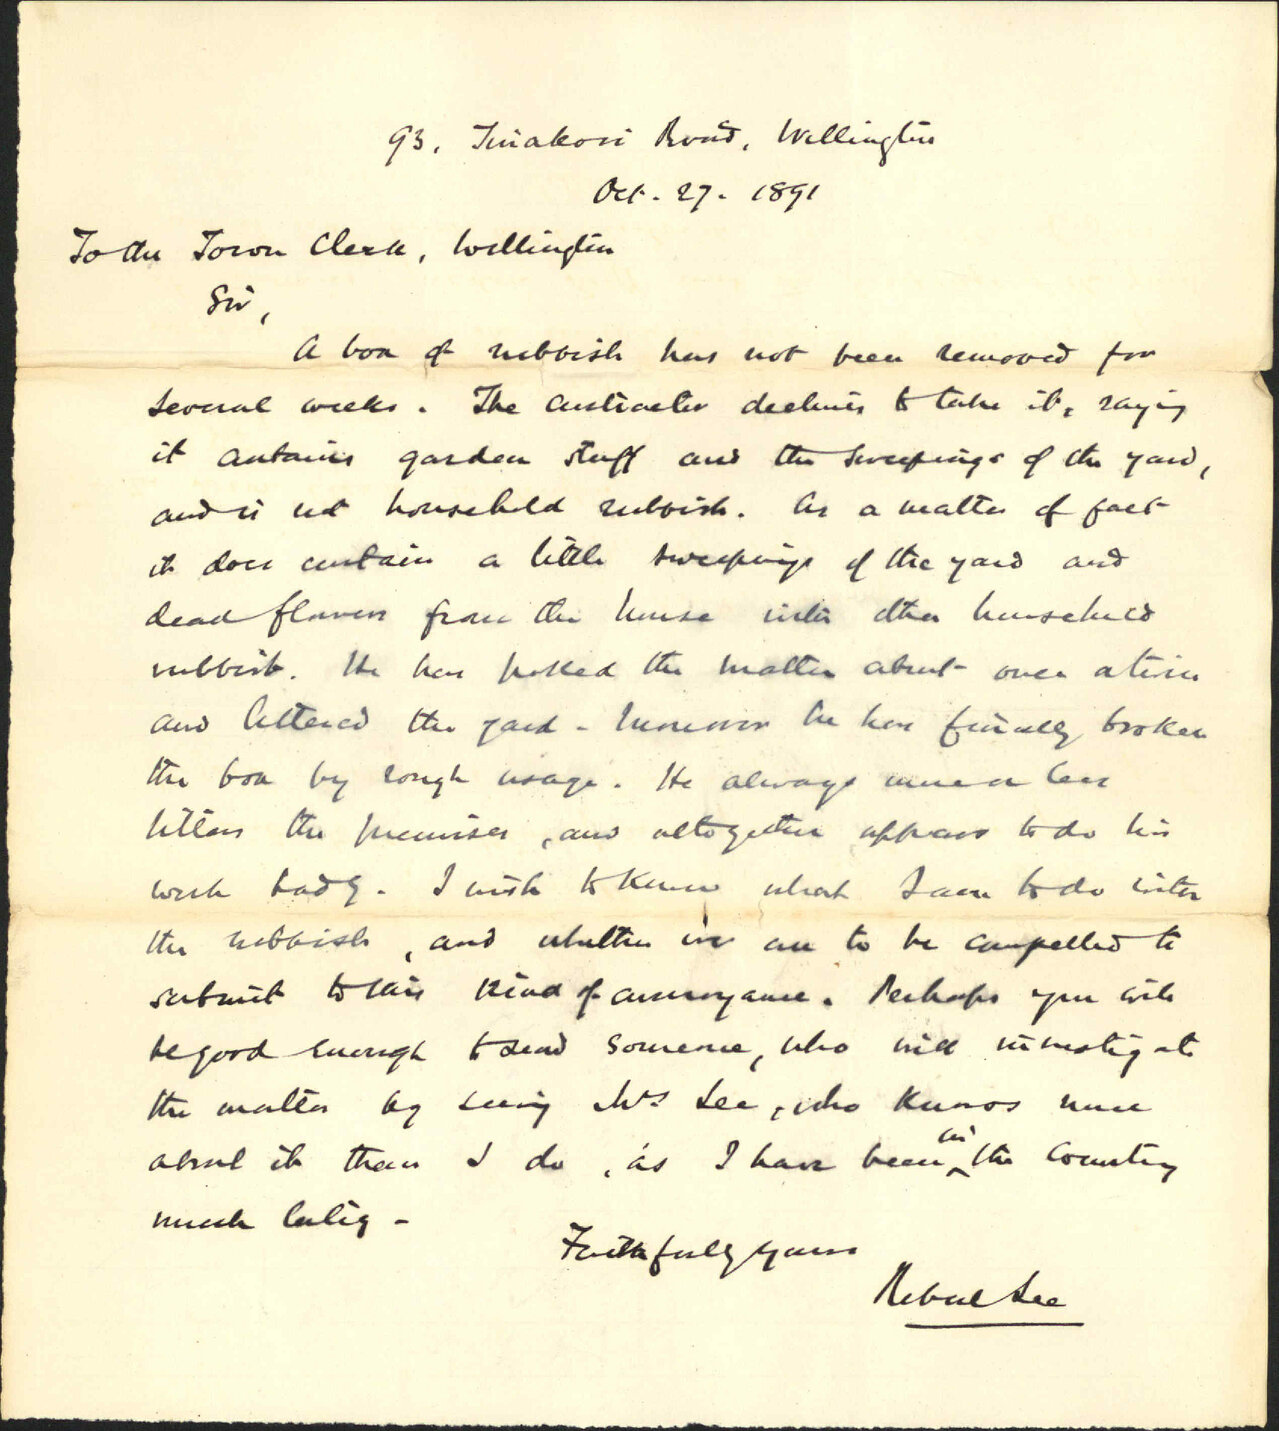 93, Tinakori Road, Wellington
Oct. 27. 1891
To the Town Clerk, Wellington
Sir,
A box of rubbish has not been removed for
several weeks. The contractor declines to take it, saying
it contains garden stuff and the sweepings of the yard,
and is not household rubbish. As a matter of fact
it does contain a little sweepings of the yard and
dead flowers from the house with other household
rubbish. He has poked the matter about over a time
and littered the yard - Moreover he has finally broken
the box by rough usage. He always more or less
litters the premises, and altogether appears to do his
work badly. I wish to know what I am to do with
the rubbish, and whether we are to be compelled to
submit to this kind of annoyance. Perhaps you will
be good enough to send someone, who will investigate
the matter by seeing Mrs Lee, who knows more
about it than I do, as I have been in the country
much lately -
Faithfully yours
Lee